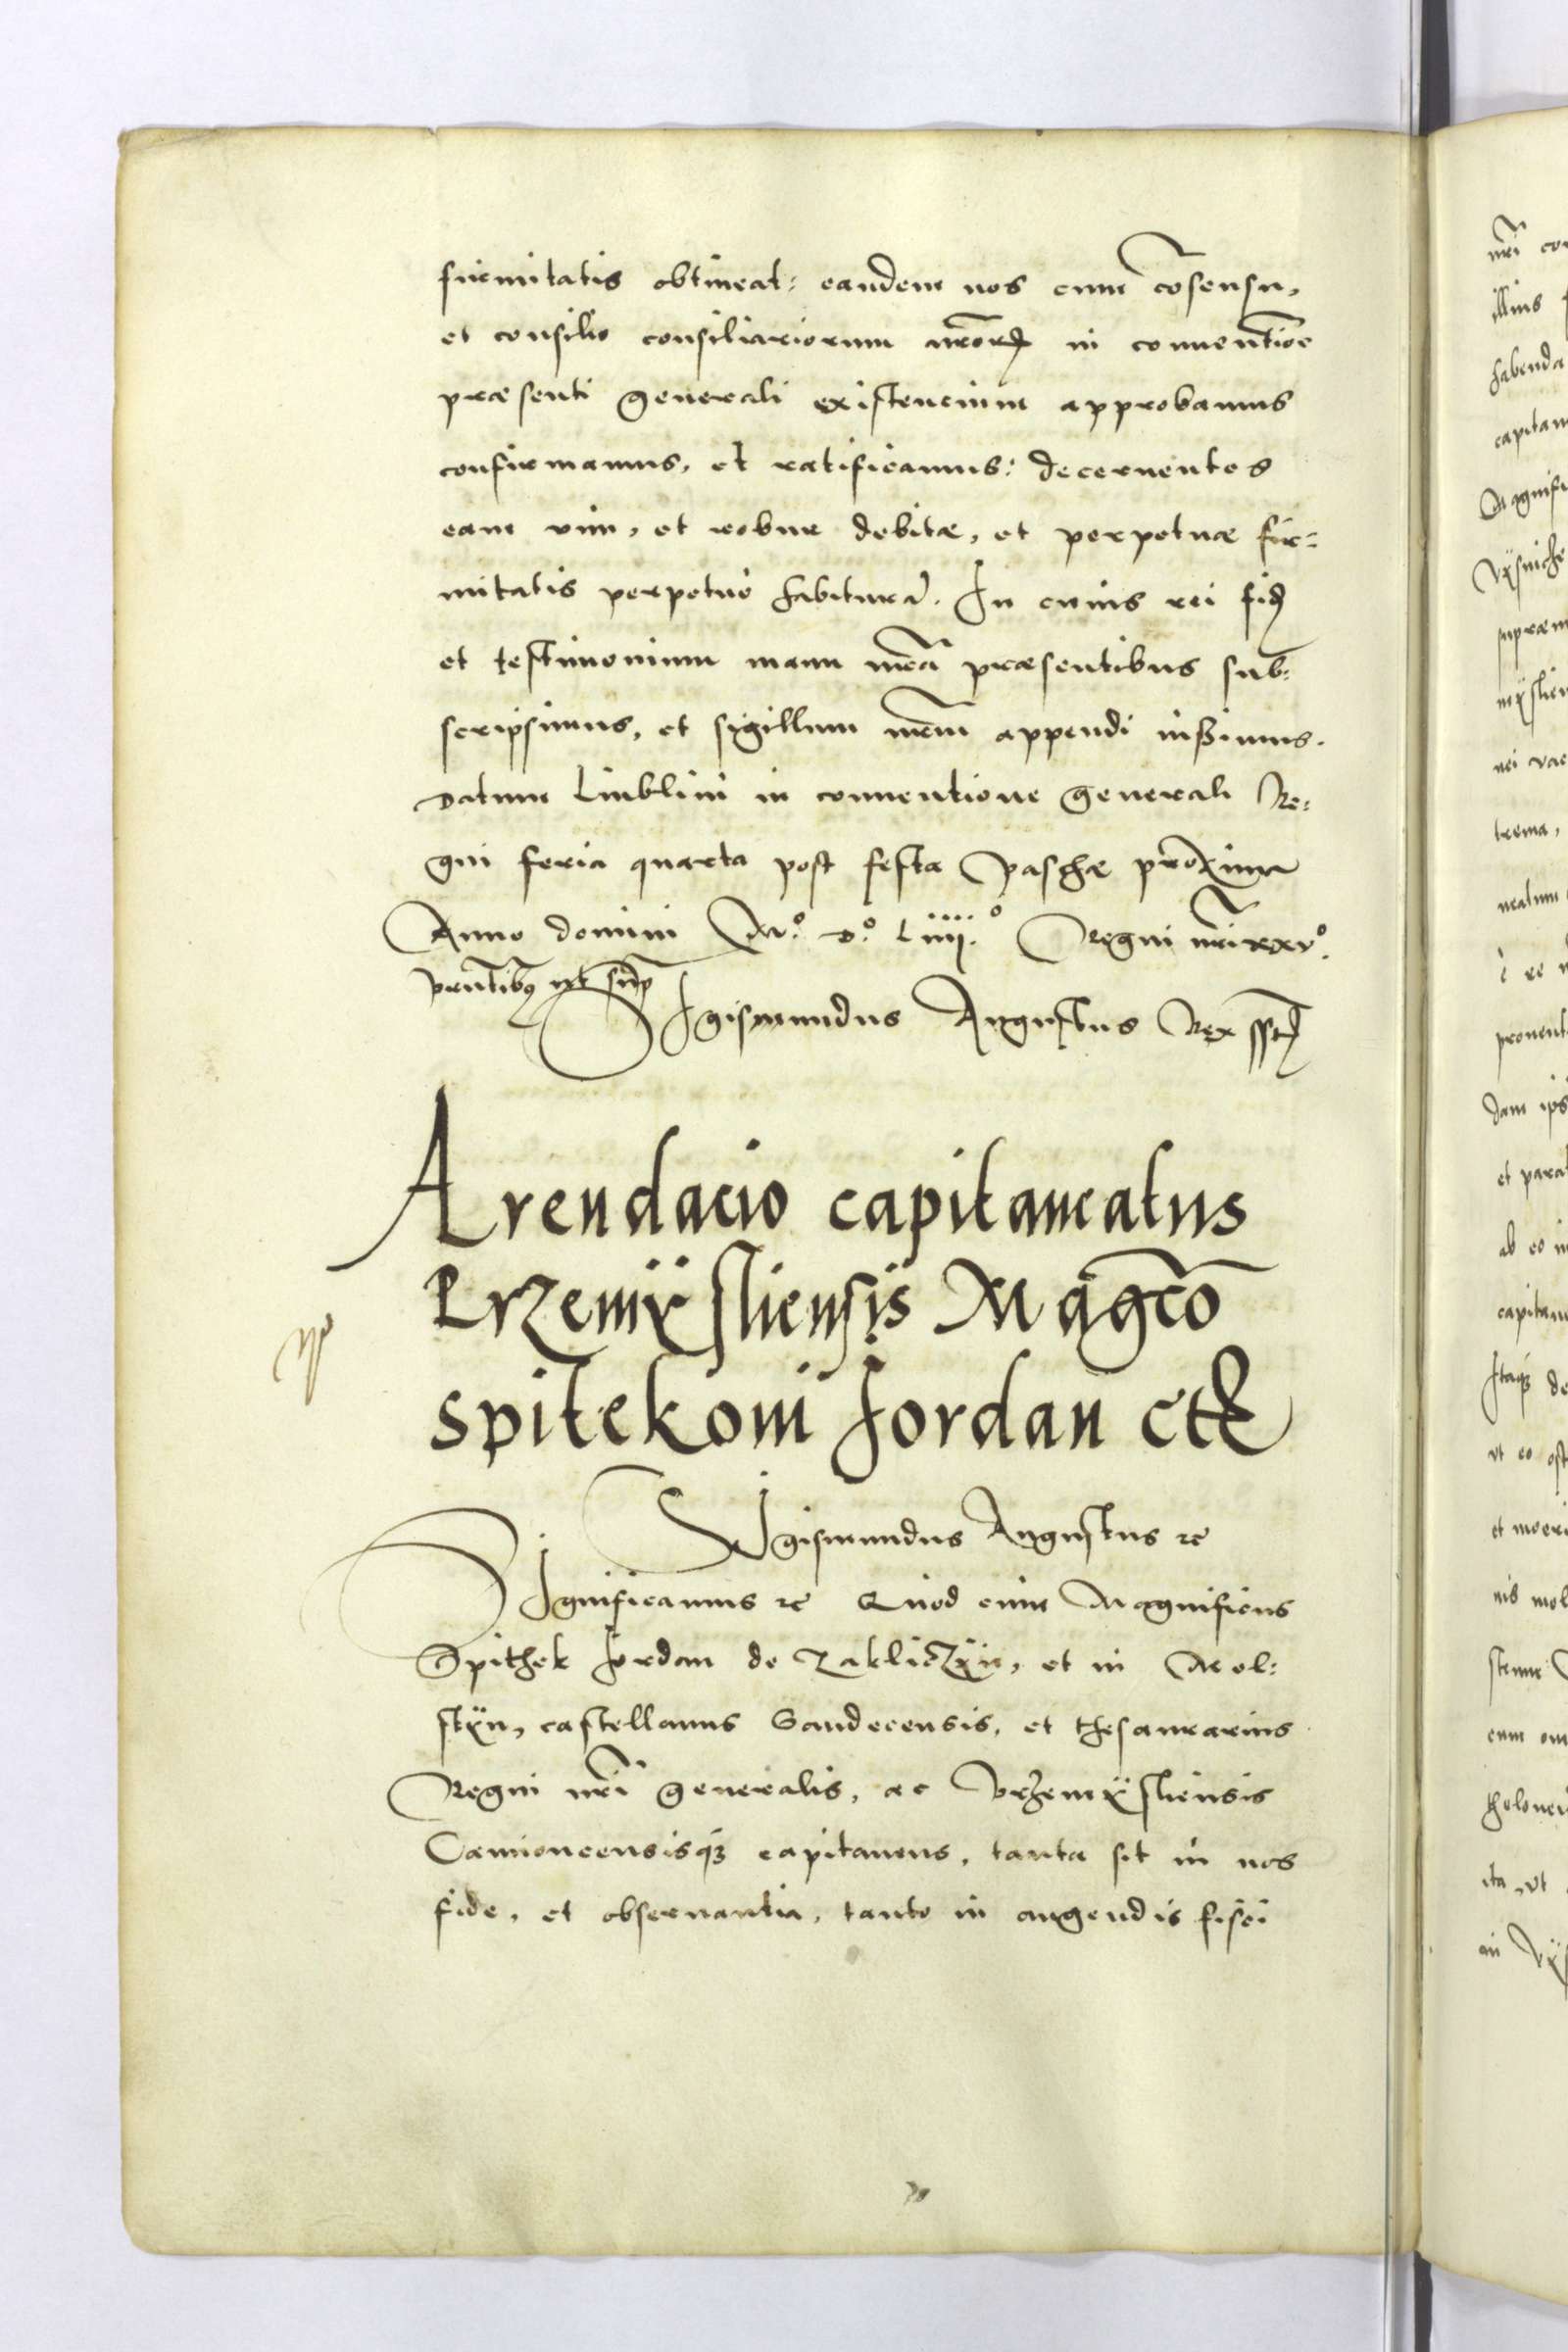 firmitatis obtineat: eandem nos cum cõsensu,
et consilio consiliariorum nr̃orũ in conuentiõe
præsenti generali existencium approbamus
confirmamus, et ratificamus: decernentes
eam vim, et robur debitæ, et perpetuæ fir:
mitatis perpetuo habiturã. In cuius rei fidẽ
et testimonium manu nr̃a præsentibus sub:
scripsimus, et sigillum nr̃um appendi iussimus.
Datum Liublini in conuentione generali Re:
gni feria quarta post festa Paschæ proxima
Anno domini M.º D.º Liiii.º Regni nr̃i xxv.º
prñtibus vt supr
Sigismundus Augustus Rex sst
Arendacio capitaneatus
Przemÿsliensis Magco
Spitekoni Jordan etc
Sigismundus Augustus etc
Significamus etc Quod cum Magnificus
Spithek Jordan de Zakliczÿn, et in Mel:
stÿn, castellanus Sandecensis, et thesaurarius
Regni nr̃i generalis, ac Przemÿsliensis
Camionecensisq3 capitaneus, tanta sit in nos
fide, et obseruantia, tanto in augendis fisci
nr̃i
illius
habenda
Magnifi
nei vac
trema,
prouent
dam ips
et parat
ab eo in
Itaq3 de
vt eo
nis mol
ita, vt